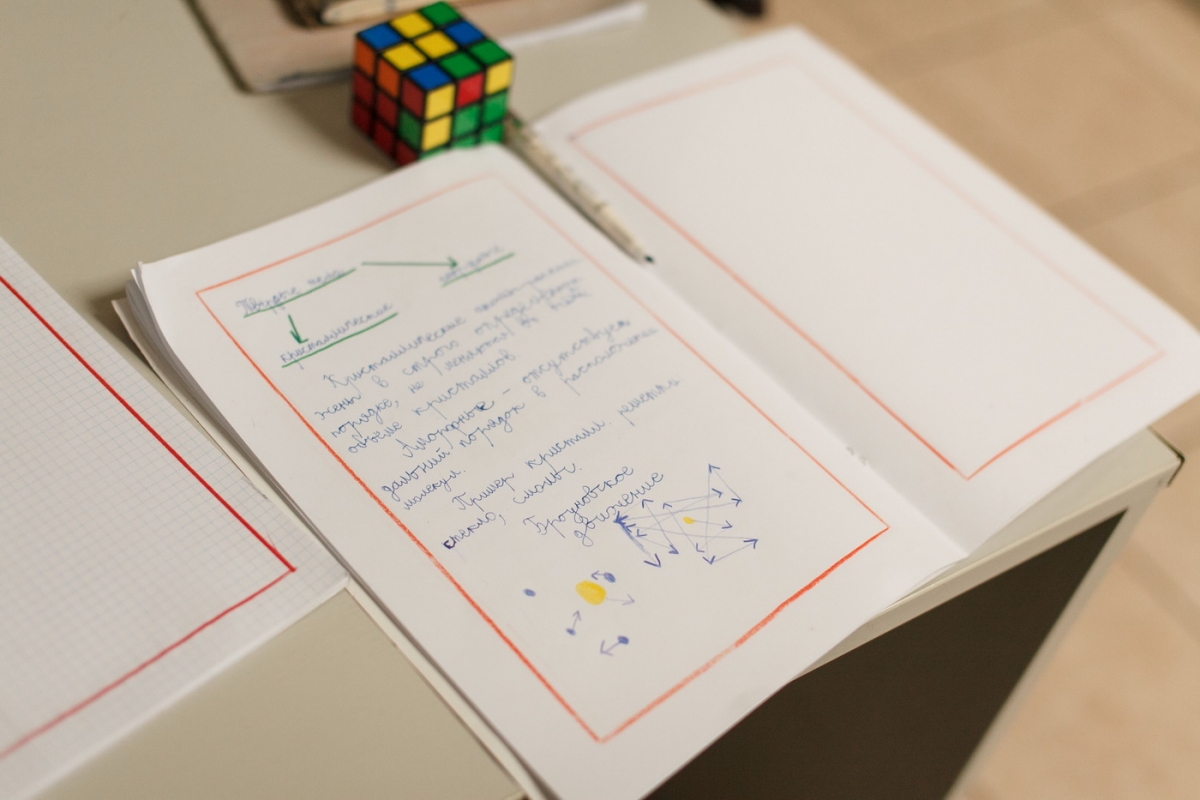 Твердые тела
кристаллические
Кристаллические
жены в строго определённом
порядке, не меняются во всём
объёме кристаллов
Аморфные - отсутствует
дальний порядок в расположении
молекул.
Пример кристалл. решетки
стекло,
Броуновское
движение